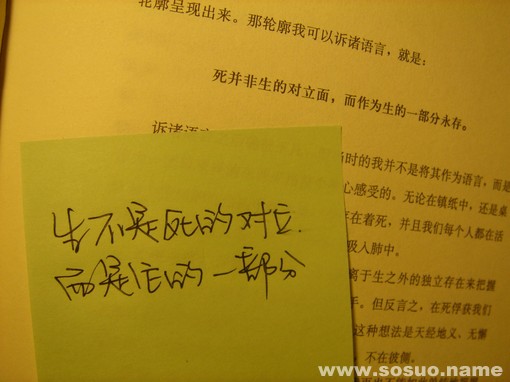 轮廓呈现出来。那轮廓我可以诉诸语言，就是：
死并非生的对立面，而作为生的一部分永存。
诉诸语言
当时的我并不是将其作为语言，而是
心感受的。无论在镇纸中，还是桌
存在着死，并且我们每个人都在活
吸入肺中。
离于生之外的独立存在来把握
手。但反言之，在死俘获我们
这种想法是天经地义、无懈
，不在彼侧。
生不是死的对立
而是它的一部分
www.sosuo.name